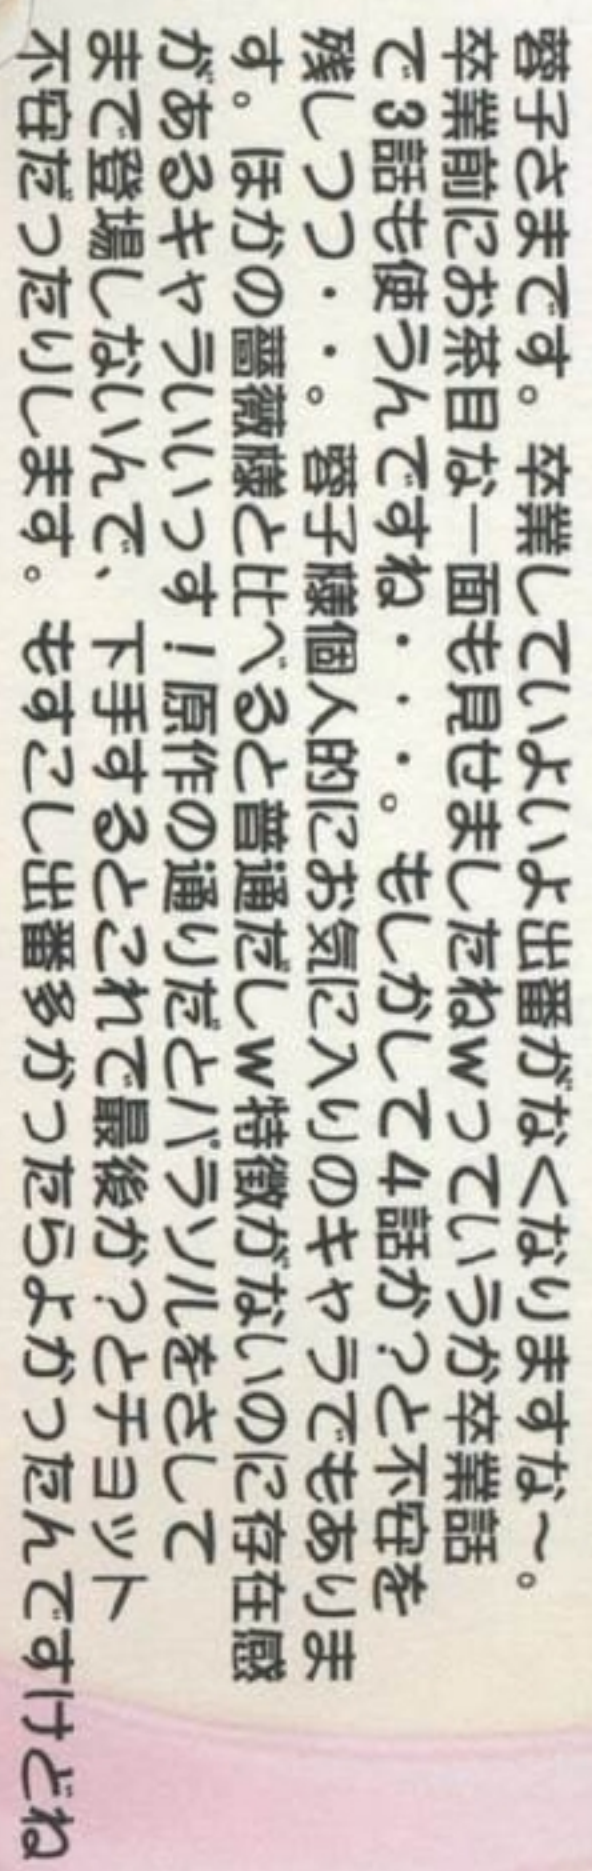 蓉子さまです。卒業していよいよ出番がなくなりますな～。
卒業前にお茶目な一面も見せましたねwっていうか卒業話
で3話も使うんですね・・・。もしかして4話か？と不安を
残しつつ・・。蓉子様個人的にお気に入りのキャラでもありま
す。ほかの薔薇様と比べると普通だしw特徴がないのに存在感
があるキャラいいっす！原作の通りだとパラソルをさして
まで登場しないんで、下手するとこれで最後か？とチョット
不安だったりします。もすこし出番多かったらよかったんですけどね